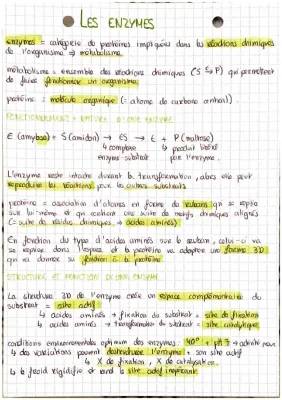 LES ENZYMES
enzymes = catégorie de protéines impliquées dans les réactions chimiques
de l'organisme ⇒ métabolisme.
métabolisme = ensemble des réactions chimiques (S → P) qui permettent
de faire fonctionner un organisme.
protéine = molécule organique (= atome de carbone).
FONCTIONNEMENT + NATURE D'UNE ENZYME
E (amylase) + S (amidon) → ES → E + P (maltose)
↳ complexe ↳ produit libéré
enzyme-substrat par l'enzyme.
L'enzyme reste intacte durant la transformation, alors elle peut
reproduire les réactions pour les autres substrats
protéine = association d'atomes en forme de rubans qui se replie
sur lui-même et qui contient une suite de motifs chimiques alignés
(= suite d'acides aminés)
En fonction du type d'acides aminés sur le ruban, celui-ci va
se replier dans l'espace et la protéine va adopter une forme 3D
qui va donner sa fonction à la protéine
STRUCTURE ET FONCTION D'UNE ENZYME
La structure 3D de l'enzyme crée un espace complémentaire du
substrat = site actif
↳ acides aminés → fixation du substrat = site de fixation
↳ acides aminés → transformation du substrat = site catalytique
conditions environnementales optimum des enzymes: 40° + pH 7 → activité max
↳ des variations peuvent déstructurer l'enzyme + son site actif
↳ X de fixation, X de catalysation.
↳ le froid rigidifie et rend le site actif inopérant.